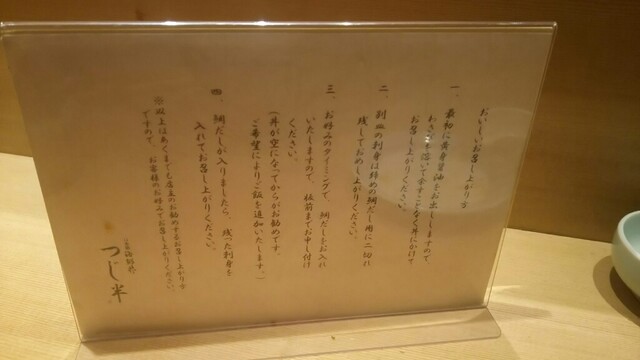 おいしいお召し上がり方
一、最初に黄身醤油をお出ししますので
わさびを溶いて余すことなく丼にかけて
お召し上がりください。
二、別皿の刺身は締めの鯛だし用に二切れ
残しておめし上がりください。
三、お好みのタイミングで、鯛だしをお入れ
いたしますので、板前までお申し付け
ください。
(丼が空になってからがお勧めです
ご希望によりご飯を追加いたします。)
四、鯛だしが入りましたら、残った刺身を
入れてお召し上がりください。
※以上はあくまでも店主のお勧めするお召し上がり方
ですので、お客様のお好みでお召し上がりください。
海鮮丼
つじ半